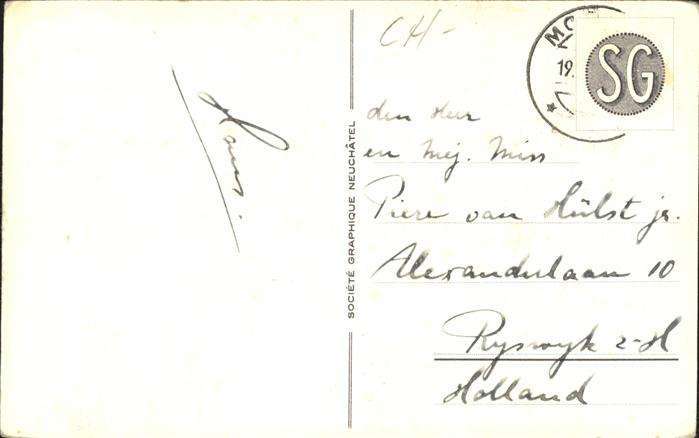 CH-
MO
19.
SG
den Heer
en Mej. Miss
Piere van Hülst jr.
Alexanderlaan 10
Ryswyk Z-H
Holland
Hans.
SOCIÉTÉ GRAPHIQUE NEUCHÂTEL